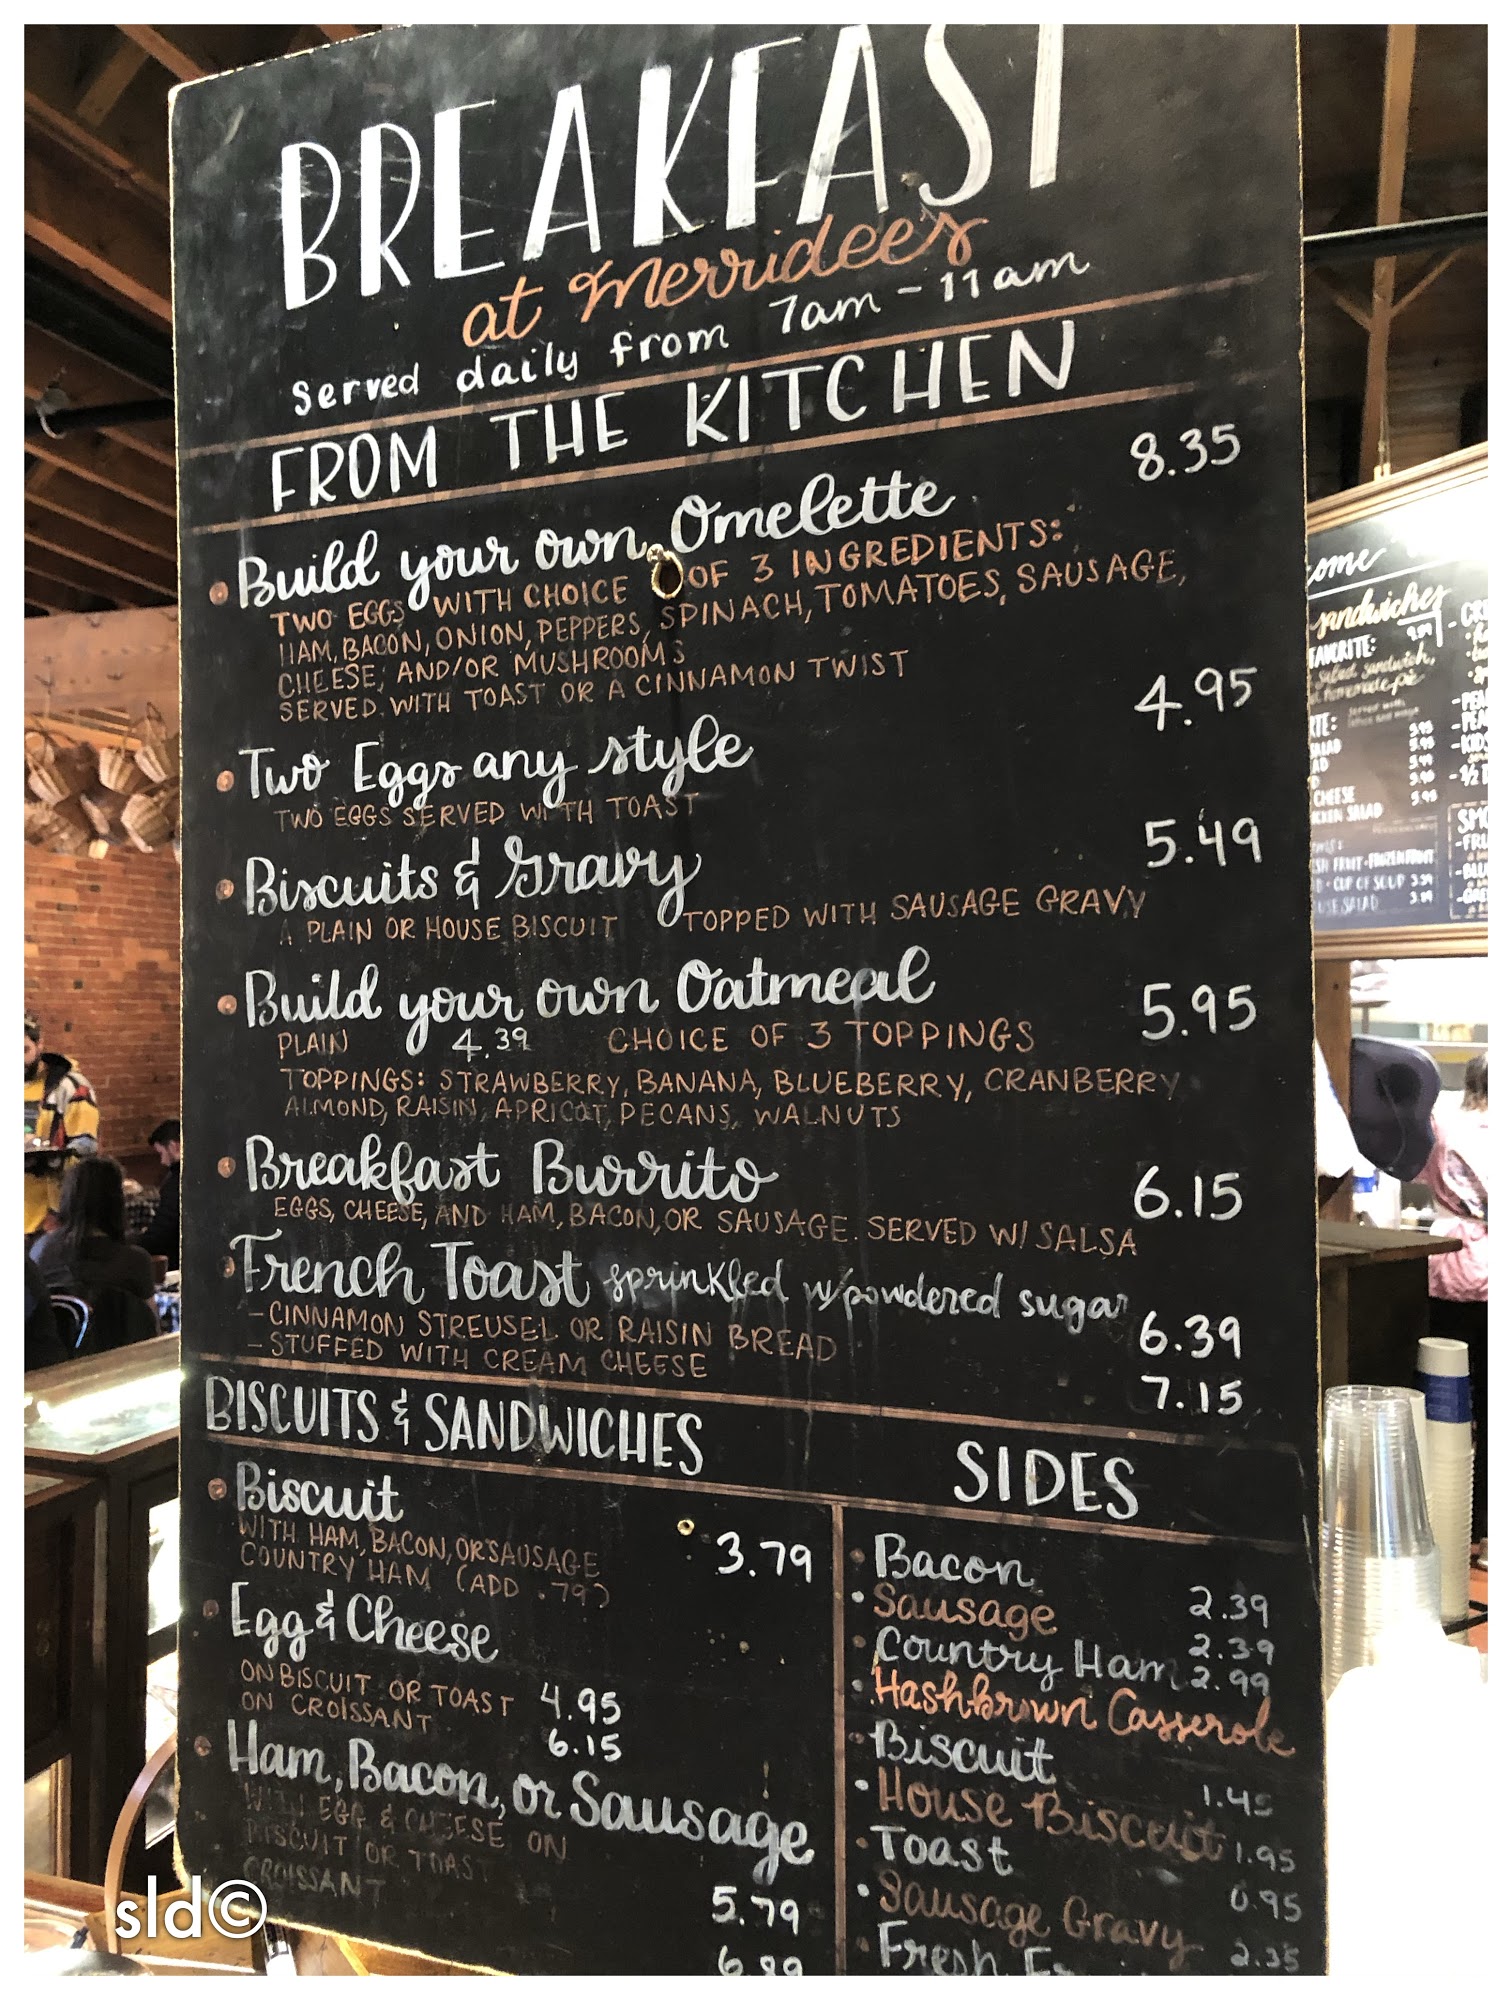 BREAKFAST
at Merridee's
served daily from 7am - 11am
FROM THE KITCHEN
Build your own Omelette 8.35
TWO EGGS WITH CHOICE OF 3 INGREDIENTS:
HAM, BACON, ONION, PEPPERS, SPINACH, TOMATOES, SAUSAGE,
CHEESE, AND/OR MUSHROOMS
SERVED WITH TOAST OR A CINNAMON TWIST
Two Eggs any style 4.95
TWO EGGS SERVED WITH TOAST
Biscuits & Gravy 5.49
A PLAIN OR HOUSE BISCUIT TOPPED WITH SAUSAGE GRAVY
Build your own Oatmeal 5.95
PLAIN 4.39 CHOICE OF 3 TOPPINGS
TOPPINGS: STRAWBERRY, BANANA, BLUEBERRY, CRANBERRY
ALMOND, RAISIN, APRICOT, PECANS, WALNUTS
Breakfast Burrito 6.15
EGGS, CHEESE, AND HAM, BACON, OR SAUSAGE. SERVED W/ SALSA
French Toast sprinkled w/powdered sugar
- CINNAMON STREUSEL OR RAISIN BREAD 6.39
- STUFFED WITH CREAM CHEESE 7.15
BISCUITS & SANDWICHES
Biscuit
WITH HAM, BACON, OR SAUSAGE 3.79
COUNTRY HAM (ADD .79)
Egg & Cheese
ON BISCUIT OR TOAST 4.95
ON CROISSANT 6.15
Ham, Bacon, or Sausage
WITH EGG & CHEESE ON
BISCUIT OR TOAST
CROISSANT
5.79
6.89
SIDES
Bacon 2.39
Sausage 2.39
Country Ham 2.99
Hashbrown Casserole
Biscuit 1.45
House Biscuit 1.95
Toast 0.95
Sausage Gravy 2.35
Fresh
sandwiches
CHEESE 5.95
CUP OF SOUP 3.99
sld©